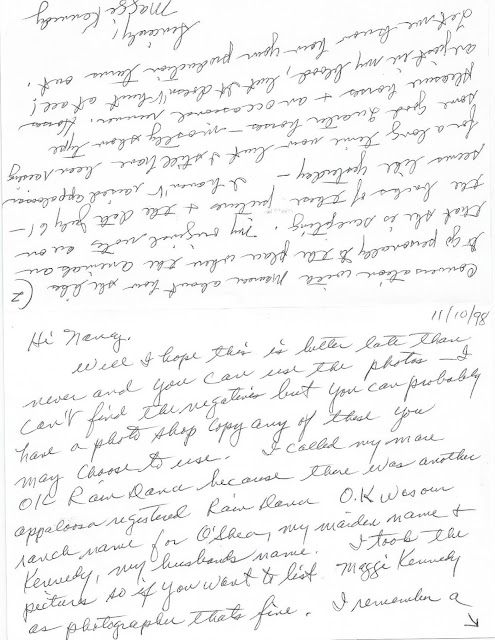 11/10/98
Hi Nancy,
Well I hope this is better late than
never and you can use the photos — I
can't find the negatives but you can probably
have a photo shop copy any of these you
may choose to use. I called my mare
O.K Rain Dance because there was another
appaloosa registered Rain Dance O.K was our
ranch name for O'Shea, my maiden name &
Kennedy, my husbands name. I took the
pictures so if you want to list Maggi Kennedy
as photographer thats fine. I remember a
(2
Conversation with about how she likes
to go personally to the place where the animal
that she is sculpting. My original notes are on
the backs of these pictures & the date July 61 —
seems like yesterday — I haven't raised appaloosas
for a long time now but I still have been raising
some good quarter horses — mostly show type
pleasure horses + an occasional runner. Horses
are just in my blood, but it doesn't hurt at all!
Let me know how your production turns out.
Sincerely,
Maggi Kennedy